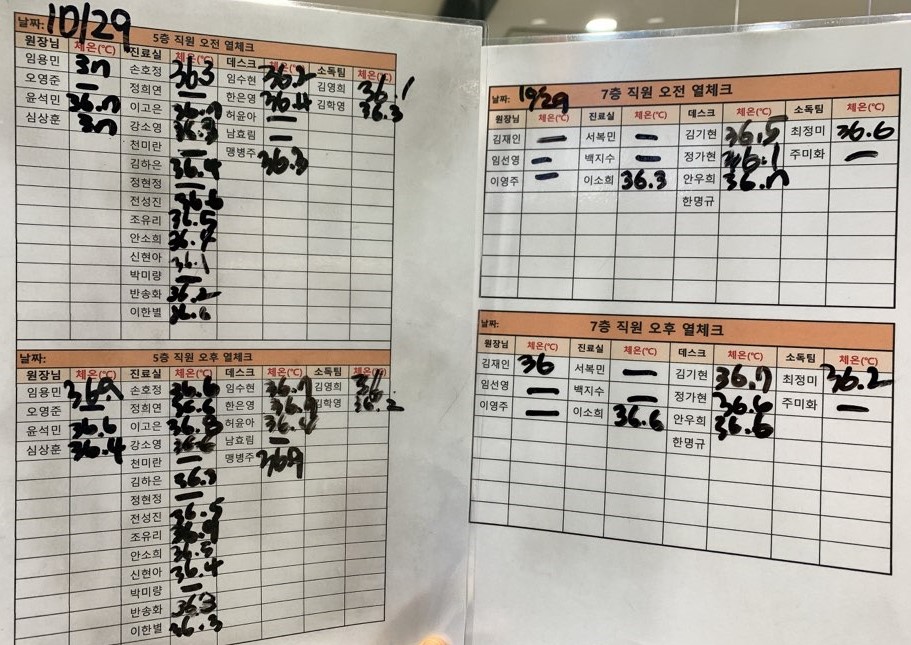 날짜: 10/29 5층 직원 오전 열체크
원장님 체온(℃) 진료실 체온(℃) 데스크 체온(℃) 소독팀 체온(℃)
임용민 손호정 36.3 임수현 36.2 김영희 36.1
오영준 — 정희연 — 한은영 36.4 김학영 36.3
윤석민 36.7 이고은 36.7 허윤아 —
심상훈 강소영 36.3 남효림 —
천미란 — 맹병주 36.3
김하은 36.4
정현정 —
전성진 36.6
조유리 36.5
안소희 36.7
신현아 36.1
박미량 —
반송화 36.2
이한별 36.6
날짜: 5층 직원 오후 열체크
원장님 체온(℃) 진료실 체온(℃) 데스크 체온(℃) 소독팀 체온(℃)
임용민 손호정 36.6 임수현 36.7 김영희 36
오영준 — 정희연 36.6 한은영 36.7 김학영 36.2
윤석민 36.6 이고은 36.8 허윤아
심상훈 36.4 강소영 36.6 남효림 —
천미란 — 맹병주 369
김하은 36.3
정현정 —
전성진 36.5
조유리
안소희 36.5
신현아 36.4
박미량 —
반송화 36.3
이한별 36.3
날짜: 10/29 7층 직원 오전 열체크
원장님 체온(℃) 진료실 체온(℃) 데스크 체온(℃) 소독팀 체온(℃)
김재인 — 서복민 — 김기현 36.5 최정미 36.6
임선영 — 백지수 — 정가현 36.1 주미화 —
이영주 — 이소희 36.3 안우희 36.7
한명규
날짜: 7층 직원 오후 열체크
원장님 체온(℃) 진료실 체온(℃) 데스크 체온(℃) 소독팀 체온(℃)
김재인 36 서복민 — 김기현 36.7 최정미 36.2
임선영 — 백지수 — 정가현 36.6 주미화 —
이영주 — 이소희 36.6 안우희 36.6
한명규